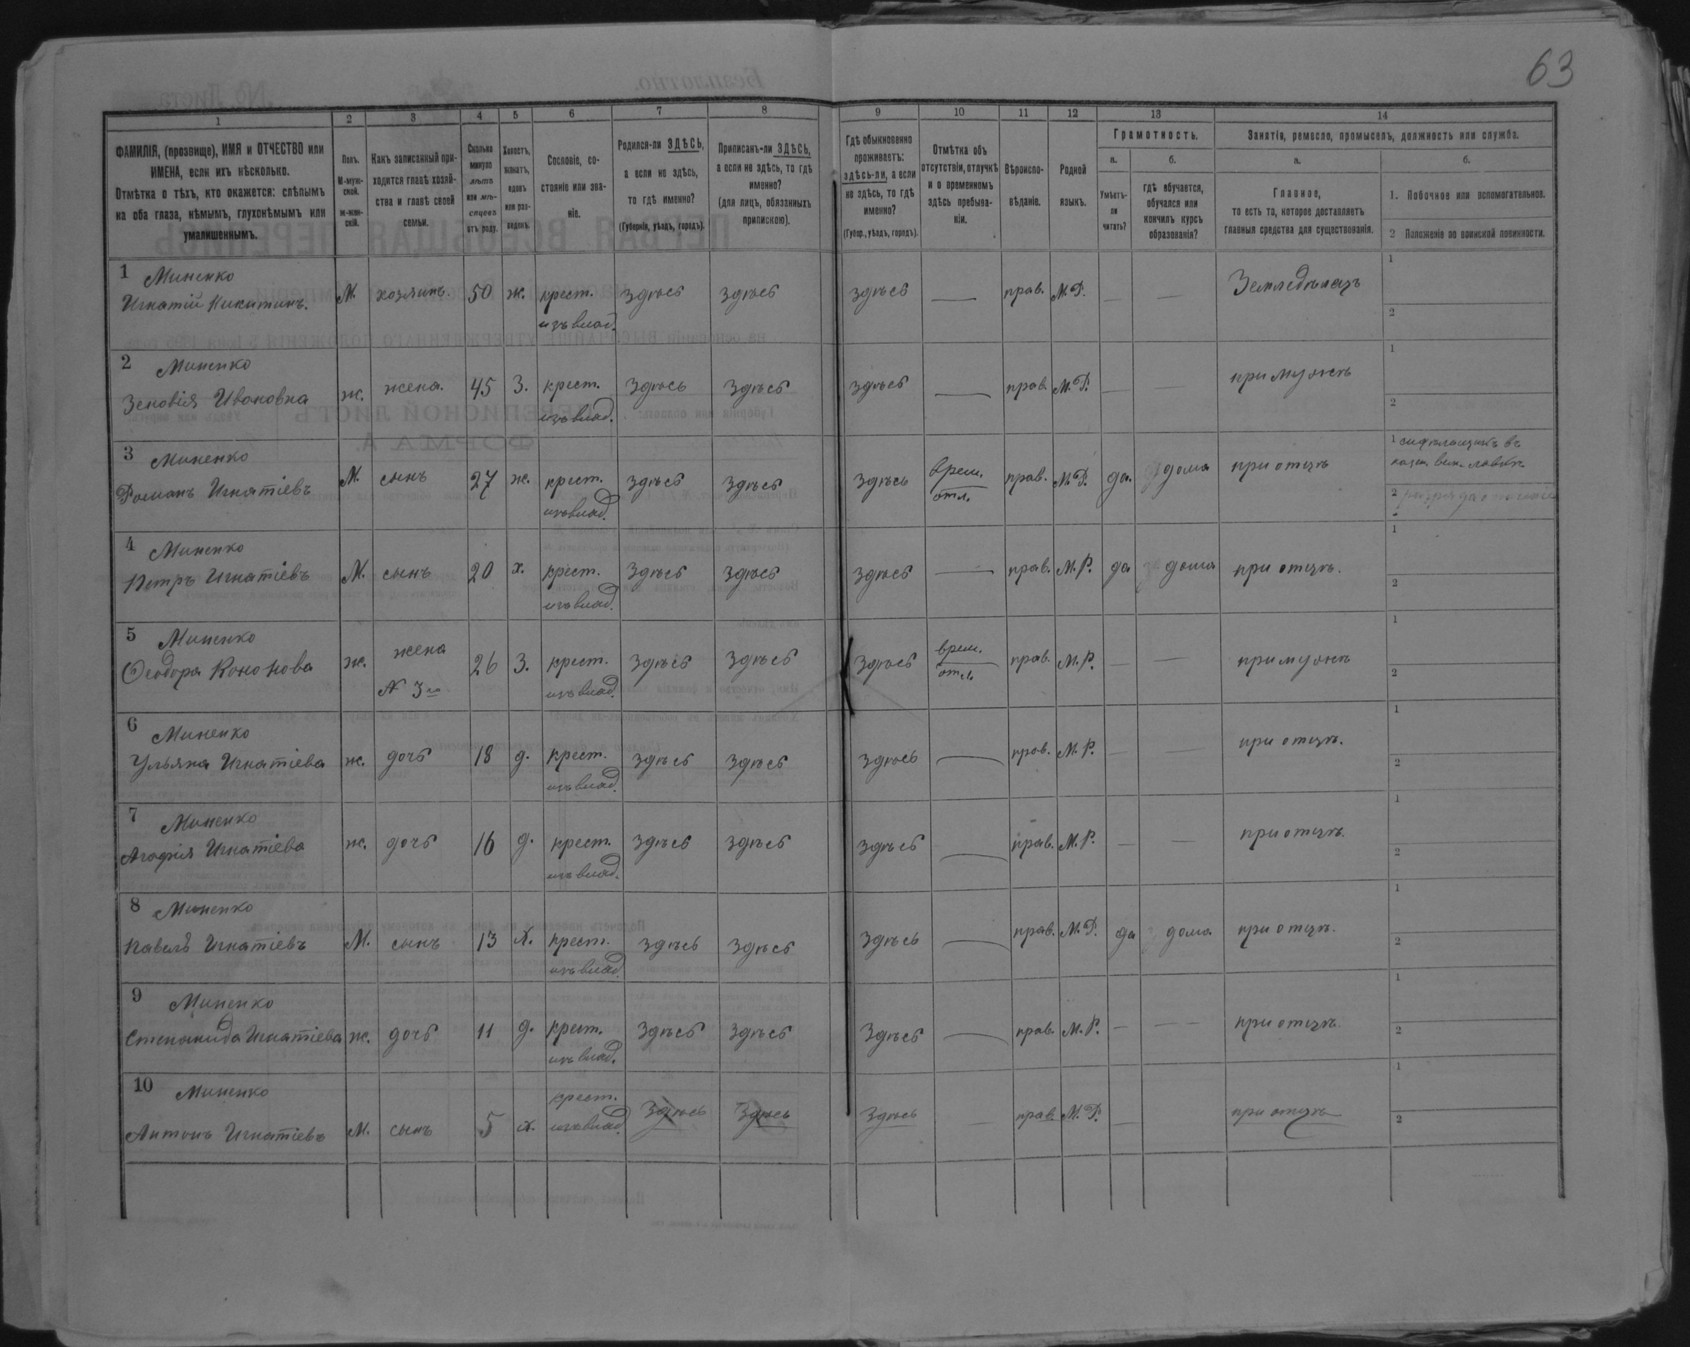 63
1 2 3 4 5 6 7 8 9 10 11 12 13 14
ФАМИЛІЯ, (прозвище), ИМЯ и ОТЧЕСТВО или
ИМЕНА, если ихъ нѣсколько.
Отмѣтка о тѣхъ, кто окажется: слѣпымъ
на оба глаза, нѣмымъ, глухонѣмымъ или
умалишеннымъ.
Полъ.
М-муж-
ской.
ж-жен-
скій.
Какъ записанный при-
ходится главѣ хозяй-
ства и главѣ своей
семьи.
Сколько
минуло
лѣтъ
или мѣ-
сяцевъ
отъ роду.
Холостъ,
женатъ,
вдовъ
или раз-
веденъ.
Сословіе, со-
стояніе или зва-
ніе.
Родился-ли ЗДѢСЬ,
а если не здѣсь,
то гдѣ именно?
(Губернія, уѣздъ, городъ).
Приписанъ-ли ЗДѢСЬ,
а если не здѣсь, то гдѣ
именно?
(для лицъ, обязанныхъ
припискою).
Гдѣ обыкновенно
проживаетъ:
здѣсь-ли, а если
не здѣсь, то гдѣ
именно?
(Губер., уѣздъ, городъ).
Отмѣтка объ
отсутствіи, отлучкѣ
и о временномъ
здѣсь пребыва-
ніи.
Вѣроиспо-
вѣданіе.
Родной
языкъ.
Грамотность.
а. б.
Умѣетъ-
ли
читать?
гдѣ обучается,
обучался или
кончилъ курсъ
образованія?
Занятія, ремесло, промыселъ, должность или служба.
а. б.
Главное,
то есть то, которое доставляетъ
главныя средства для существованія.
1. Побочное или вспомогательное.
2 Положеніе по воинской повинности.
1 Миненко
Игнатій Никитинъ. М. хозяинъ. 50 ж. крест. здѣсь здѣсь здѣсь — прав. М.Р. — — Земледѣлецъ 1
изъ влад. 2
2 Миненко
Зеновія Ивановна ж. жена. 45 З. крест. здѣсь здѣсь здѣсь — прав. М.Р. — — при мужѣ 1
изъ влад. 2
3 Миненко
Романъ Игнатіевъ М. сынъ 27 ж. крест. здѣсь здѣсь здѣсь врем. прав. М.Р. да. дома при отцѣ 1
изъ влад. отл. 2
4 Миненко
Петръ Игнатіевъ М. сынъ 20 х. крест. здѣсь здѣсь здѣсь — прав. М.Р. да дома при отцѣ. 1
изъ влад. 2
5 Миненко
Ѳеодора Кононова ж. жена 26 З. крест. здѣсь здѣсь здѣсь врем. прав. М.Р. — — при мужѣ 1
№ 3го изъ влад. отл. 2
6 Миненко
Ульяна Игнатіева ж. дочь 18 д. крест. здѣсь здѣсь здѣсь — прав. М.Р. — — при отцѣ. 1
изъ влад. 2
7 Миненко
Агафія Игнатіева ж. дочь 16 д. крест. здѣсь здѣсь здѣсь — прав. М.Р. — — при отцѣ. 1
изъ влад. 2
8 Миненко
Павелъ Игнатіевъ М. сынъ 13 х. крест. здѣсь здѣсь здѣсь — прав. М.Р. да дома при отцѣ. 1
изъ влад. 2
9 Миненко
Степанида Игнатіева ж. дочь 11 д. крест. здѣсь здѣсь здѣсь — прав. М.Р. — — при отцѣ. 1
изъ влад. 2
10 Миненко
Антонъ Игнатіевъ М. сынъ 5 х. крест. здѣсь здѣсь здѣсь — прав. М.Р. — при отцѣ 1
изъ влад. 2